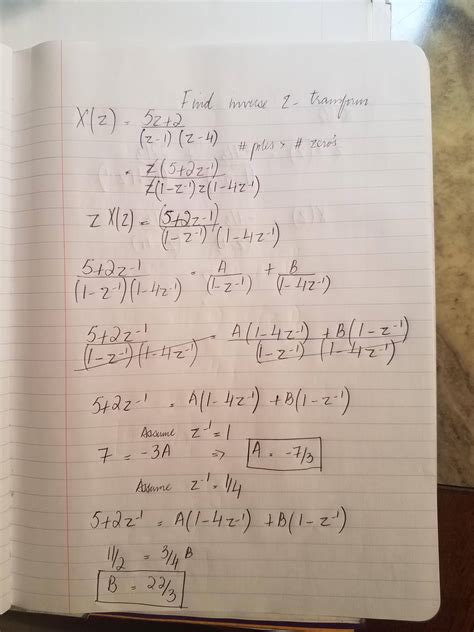 Find inverse Z-transform
X(z) = 5z+2 / (z-1)(z-4)
# poles > # zero's
= z(5+2z⁻¹) / z(1-z⁻¹)z(1-4z⁻¹)
z X(z) = (5+2z⁻¹) / (1-z⁻¹)(1-4z⁻¹)
5+2z⁻¹ / (1-z⁻¹)(1-4z⁻¹) = A / (1-z⁻¹) + B / (1-4z⁻¹)
5+2z⁻¹ / (1-z⁻¹)(1-4z⁻¹) = A(1-4z⁻¹) + B(1-z⁻¹) / (1-z⁻¹)(1-4z⁻¹)
5+2z⁻¹ = A(1-4z⁻¹) + B(1-z⁻¹)
Assume z⁻¹ = 1
7 = -3A ⇒ A = -7/3
Assume z⁻¹ = 1/4
5+2z⁻¹ = A(1-4z⁻¹) + B(1-z⁻¹)
11/2 = 3/4 B
B = 22/3